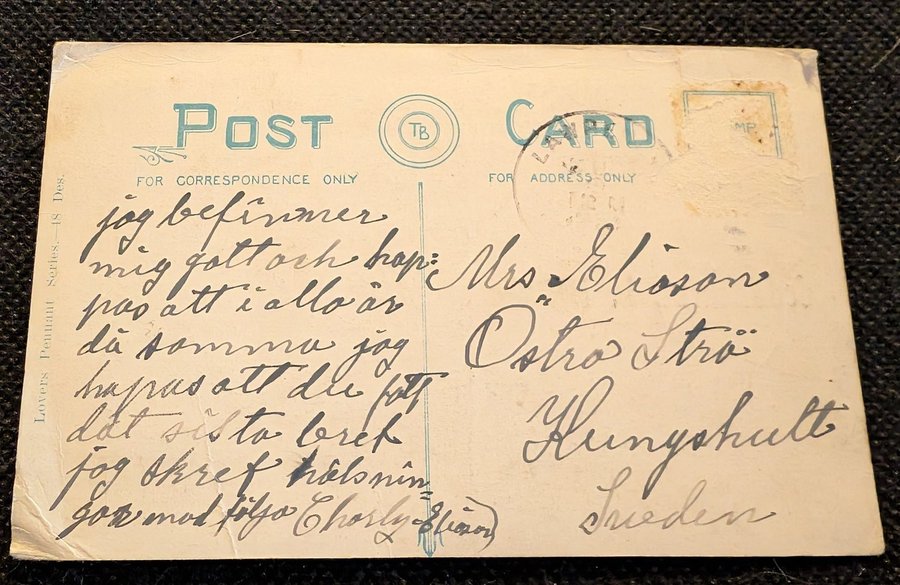 POST CARD
TB
FOR CORRESPONDENCE ONLY
FOR ADDRESS ONLY
Lovers Pennant Series.—48 Des.
jag befinner
mig gott och hop=
pas att i alla är
då samma jag
hapas att du fått
dät sista bref
jag skref hälsnin=
gar mad följa Charly Eliason
Mrs Eliason
Östra Strö
Kungshult
Sweden